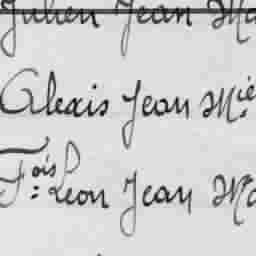 Julien Jean Ma
Alexis Jean M.ie
F.ois Leon Jean Ma